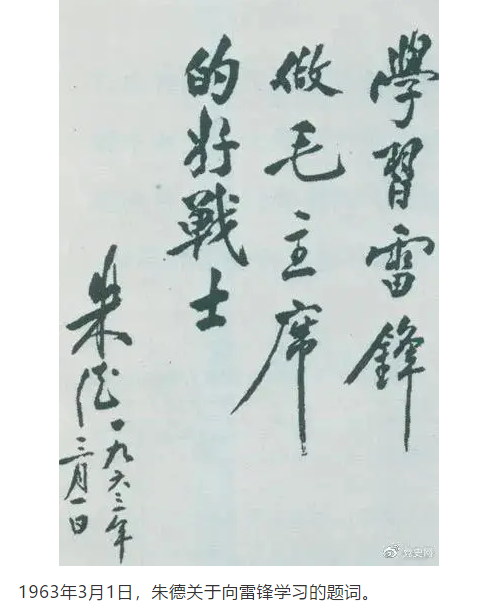 學習雷鋒
做毛主席
的好戰士
朱德
一九六三年
三月一日
党史网
1963年3月1日，朱德关于向雷锋学习的题词。